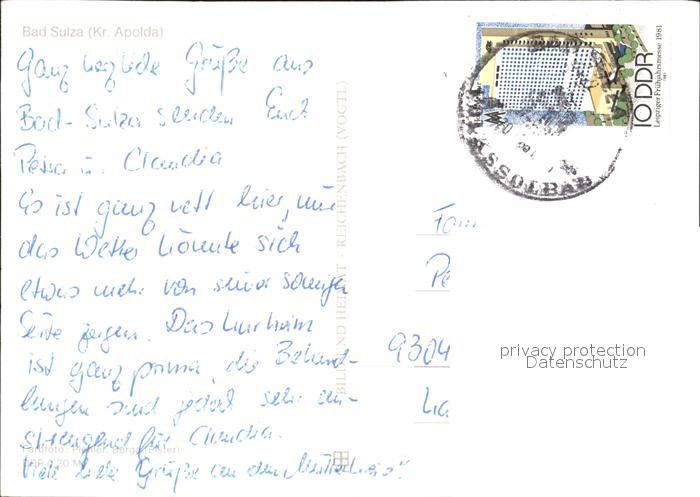 Bad Sulza (Kr. Apolda)
Ganz herzliche Grüße aus
Bad-Sulza senden Euch
Petra u. Claudia
Es ist ganz nett hier, nur
das Wetter könnte sich
etwas mehr von seiner sonnigen
Seite zeigen. Das Kurheim
ist ganz prima, die Behand-
lungen sind jedoch sehr an-
strengend für Claudia.
Viele liebe Grüße an den
Farbfoto: Berga (Elster)
BILD UND HEIMAT · REICHENBACH (VOGTL)
10 DDR
Leipziger Frühjahrsmesse 1981
SOLBAD
Fam
Pe
9304
privacy protection
Datenschutz